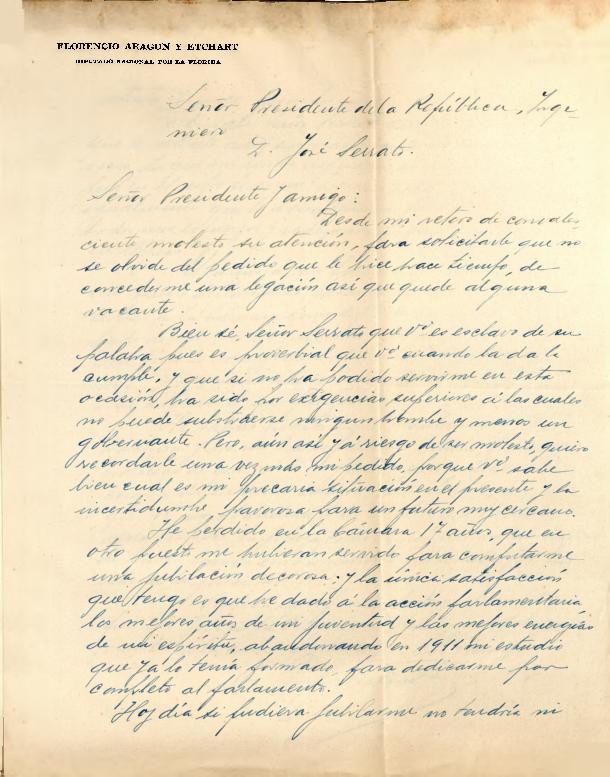 FLORENCIO ARAGON Y ETCHART
DIPUTADO NACIONAL POR LA FLORIDA
Señor Presidente de la República, Inge-
niero
D. José Serrato.
Señor Presidente y amigo:
Desde mi retiro de convales-
ciente molesto su atención, para solicitarle que no
se olvide del pedido que le hice hace tiempo, de
concederme una legación así que quede alguna
vacante.
Bien sé, Señor Serrato que Vd es esclavo de su
palabra pues es proverbial que Vd cuando la da la
cumple, y que si no ha podido servirme en esta
ocasión, ha sido por exigencias superiores á las cuales
no puede substraerse ningun hombre y menos un
gobernante. Pero, aún así y á riesgo de ser molesto, quiero
recordarle una vez más mi pedido, porque Vd sabe
bien cual es mi precaria situación en el presente y la
incertidumbre, pavorosa para un futuro muy cercano.
He perdido en la Cámara 17 años, que en
otro puesto me hubieran servido para computarme
una jubilación decorosa; y la única satisfacción
que tengo es que he dado á la acción parlamentaria
los mejores años de mi juventud y las mejores energías
de mi espíritu, abandonando en 1911 mi estudio
que yá lo tenía formado, para dedicarme por
completo al parlamento.
Hoy día si pudiera jubilarme no tendría ni